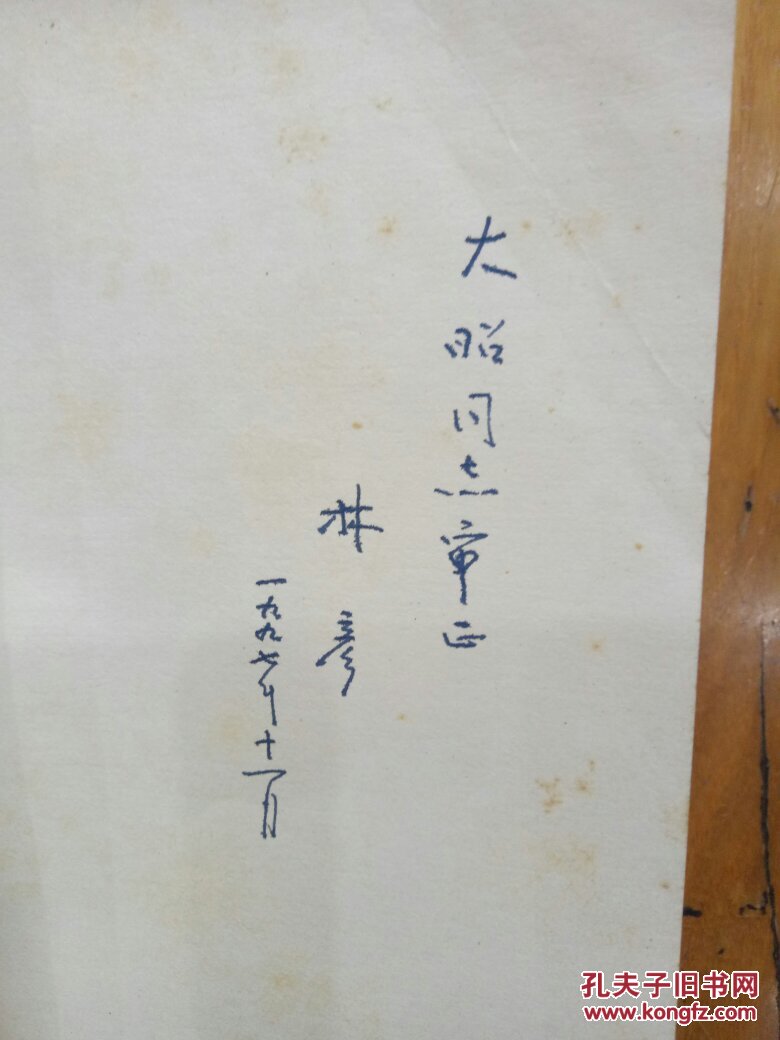 大昭同志审正
林彦
一九九七年十一月
孔夫子旧书网
www.kongfz.com